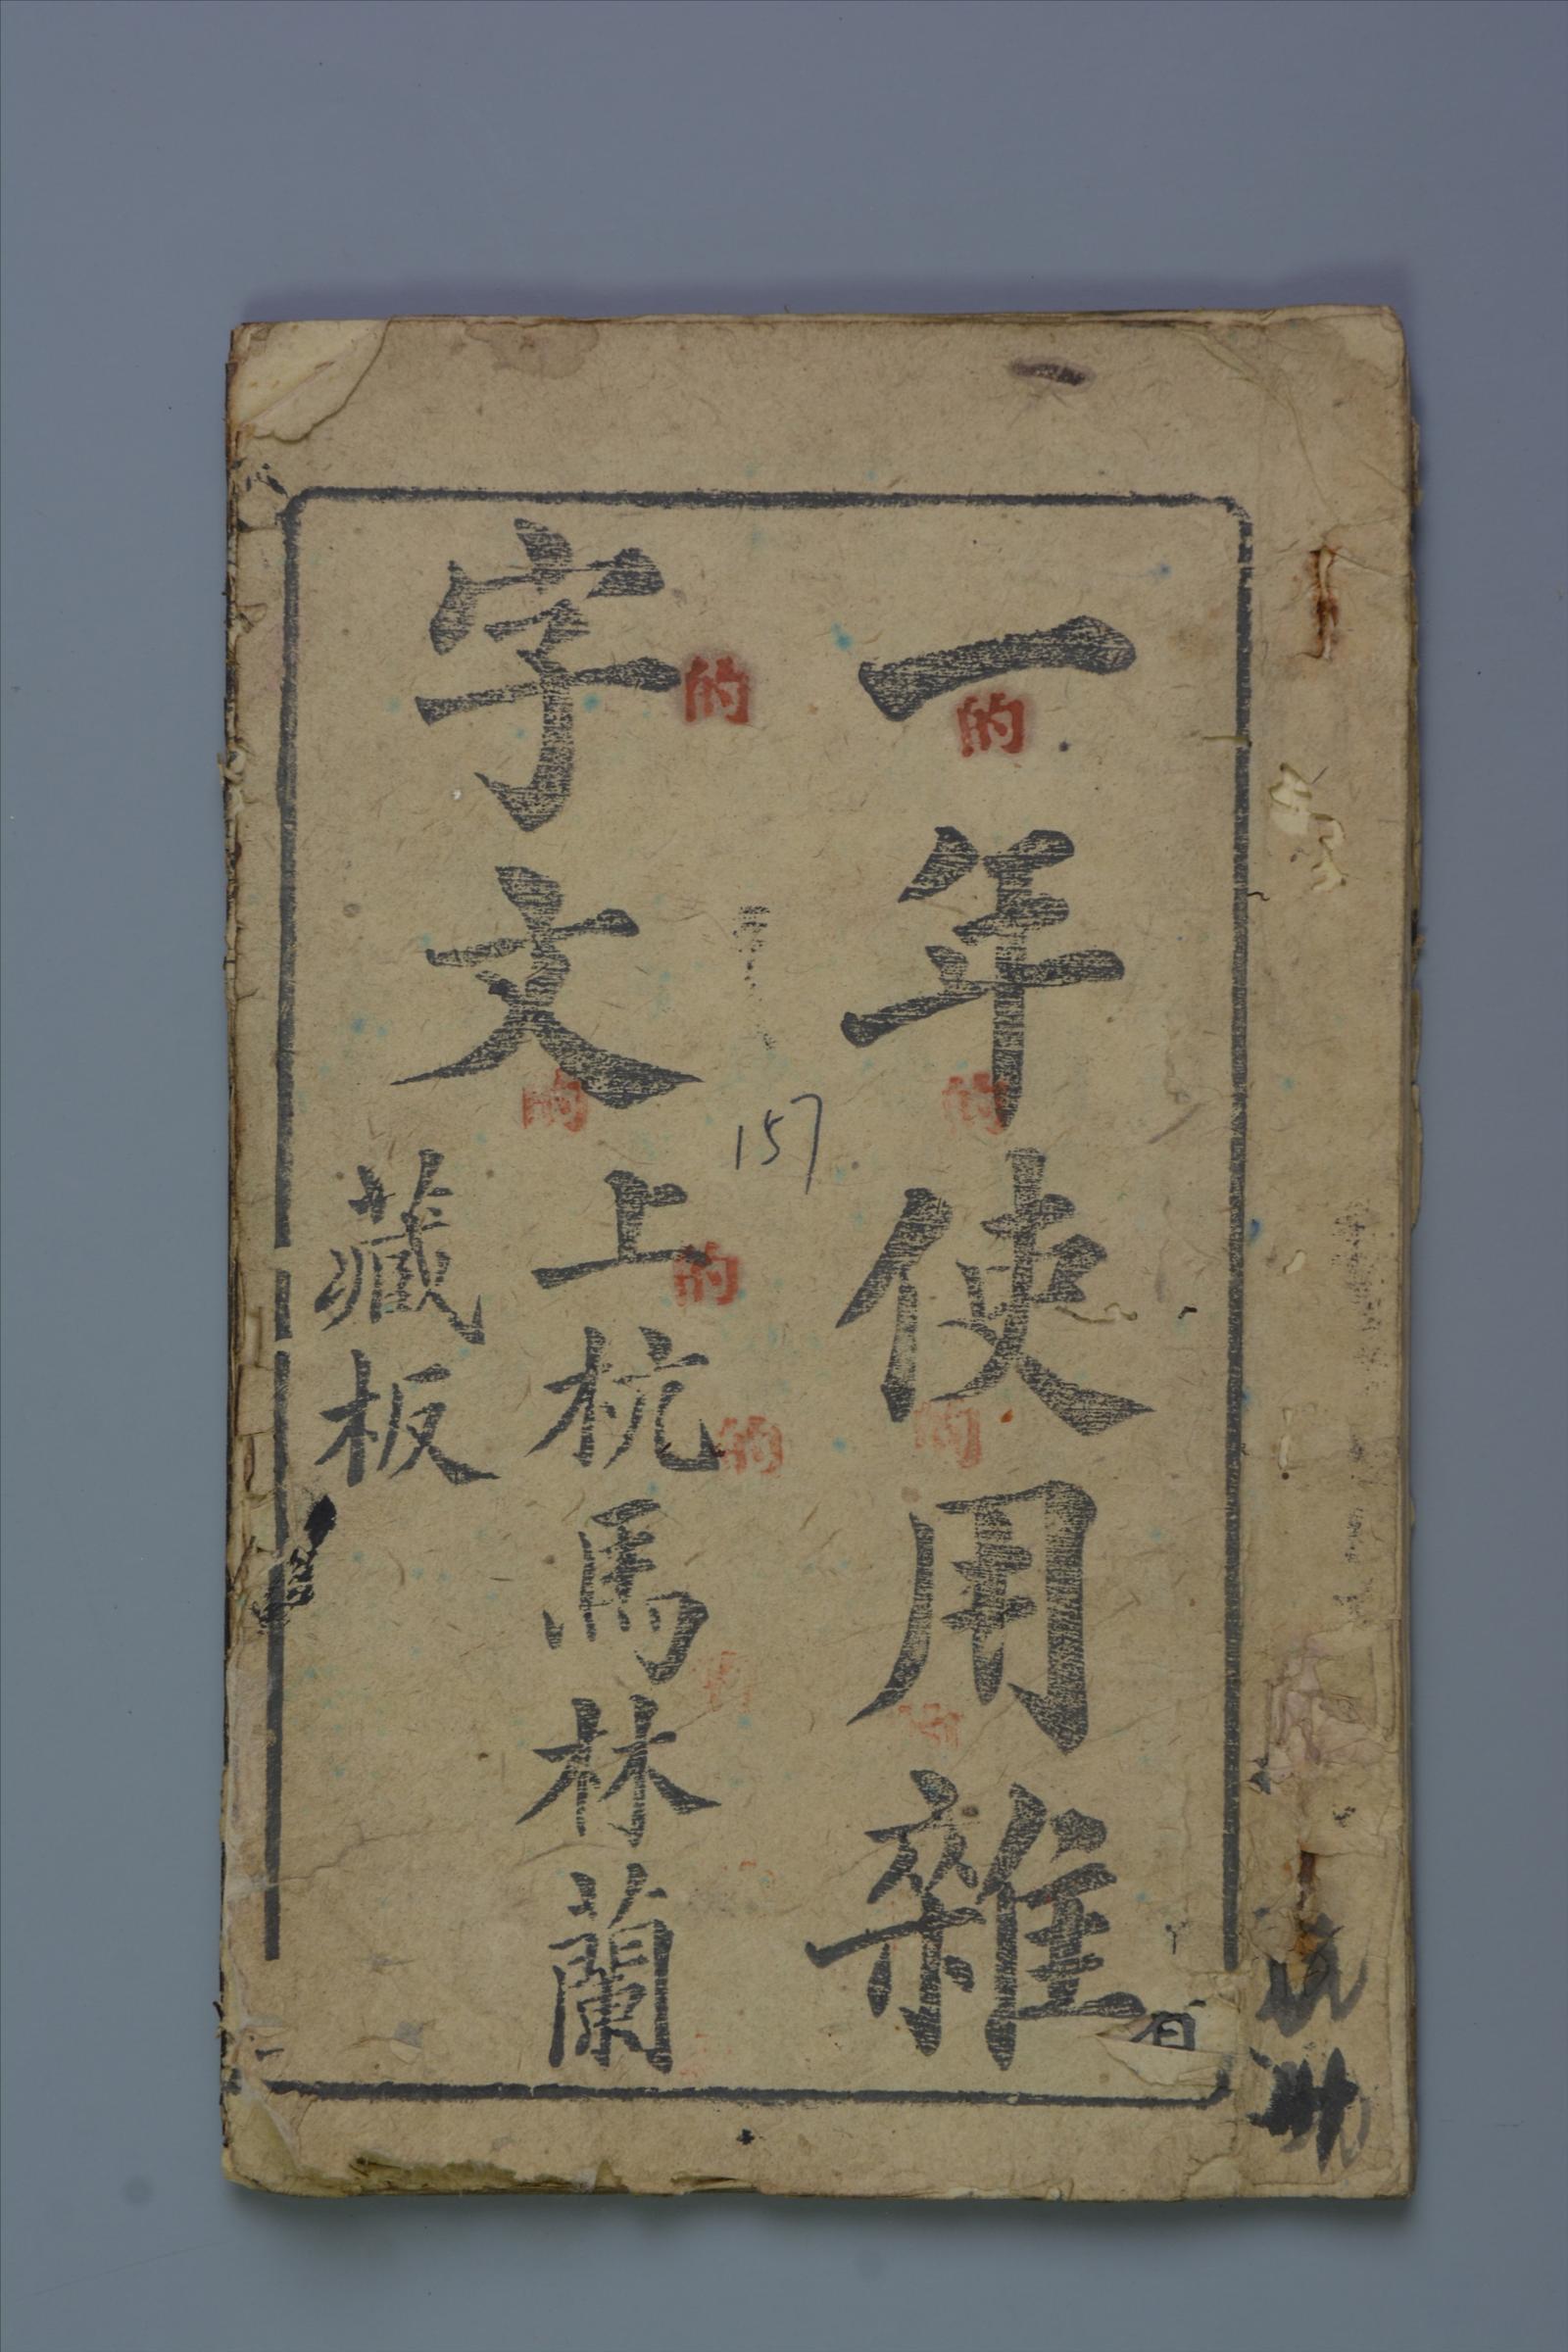 一年使用雜
字文
上杭馬林蘭
藏板
157
的
的
的
的
的
的
的